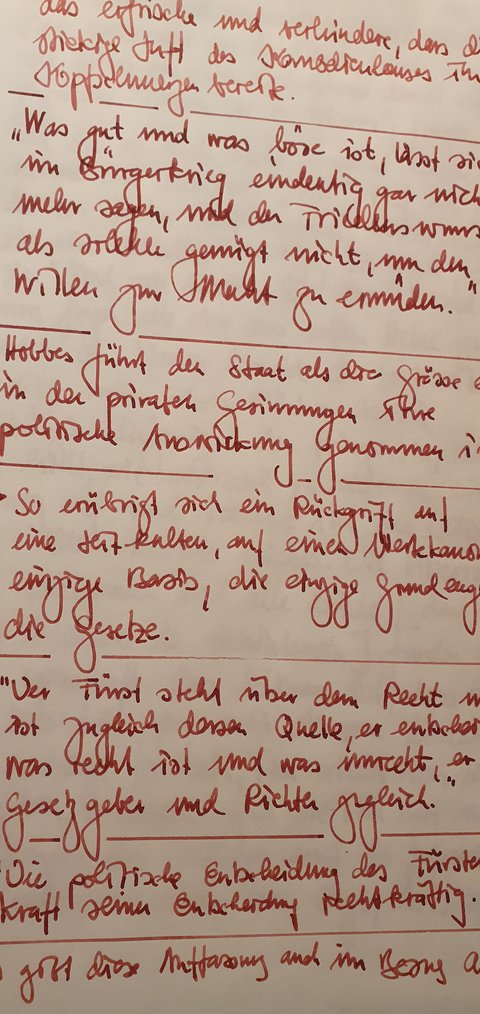 das erfrische und verhindere, dass di
stickige Luft des Komödienhauses ihr
bereite.
„Was gut und was böse ist, lässt sic
im Bürgerkrieg eindeutig gar nich
mehr sagen, und der Friedenswuns
als solcher genügt nicht, um den
Willen zur Macht zu ermüden."
Hobbes führt den Staat als die Grösse e
in der privaten Gesinnungen ihre
politische Auswirkung genommen i
So erübrigt sich ein Rückgriff auf
eine auf einen Wertekanon
einzige Basis, die einzige Grundlage
die Gesetze.
"Der Fürst steht über dem Recht u
ist zugleich dessen Quelle, er entschei
was recht ist und was unrecht, er
Gesetzgeber und Richter zugleich."
"Die politische Entscheidung des Fürsten
kraft seiner Entscheidung rechtskräftig.
gibt diese Auffassung auch im Bezug a